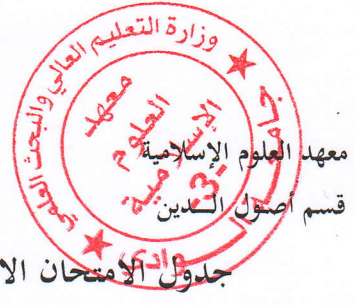 وزارة التعليم العالي والبحث العلمي
جامعة الوادي
معهد
العلوم
الإسلامية
معهد العلوم الإسلامية
قسم أصول الـدين
جدول الامتحان الا